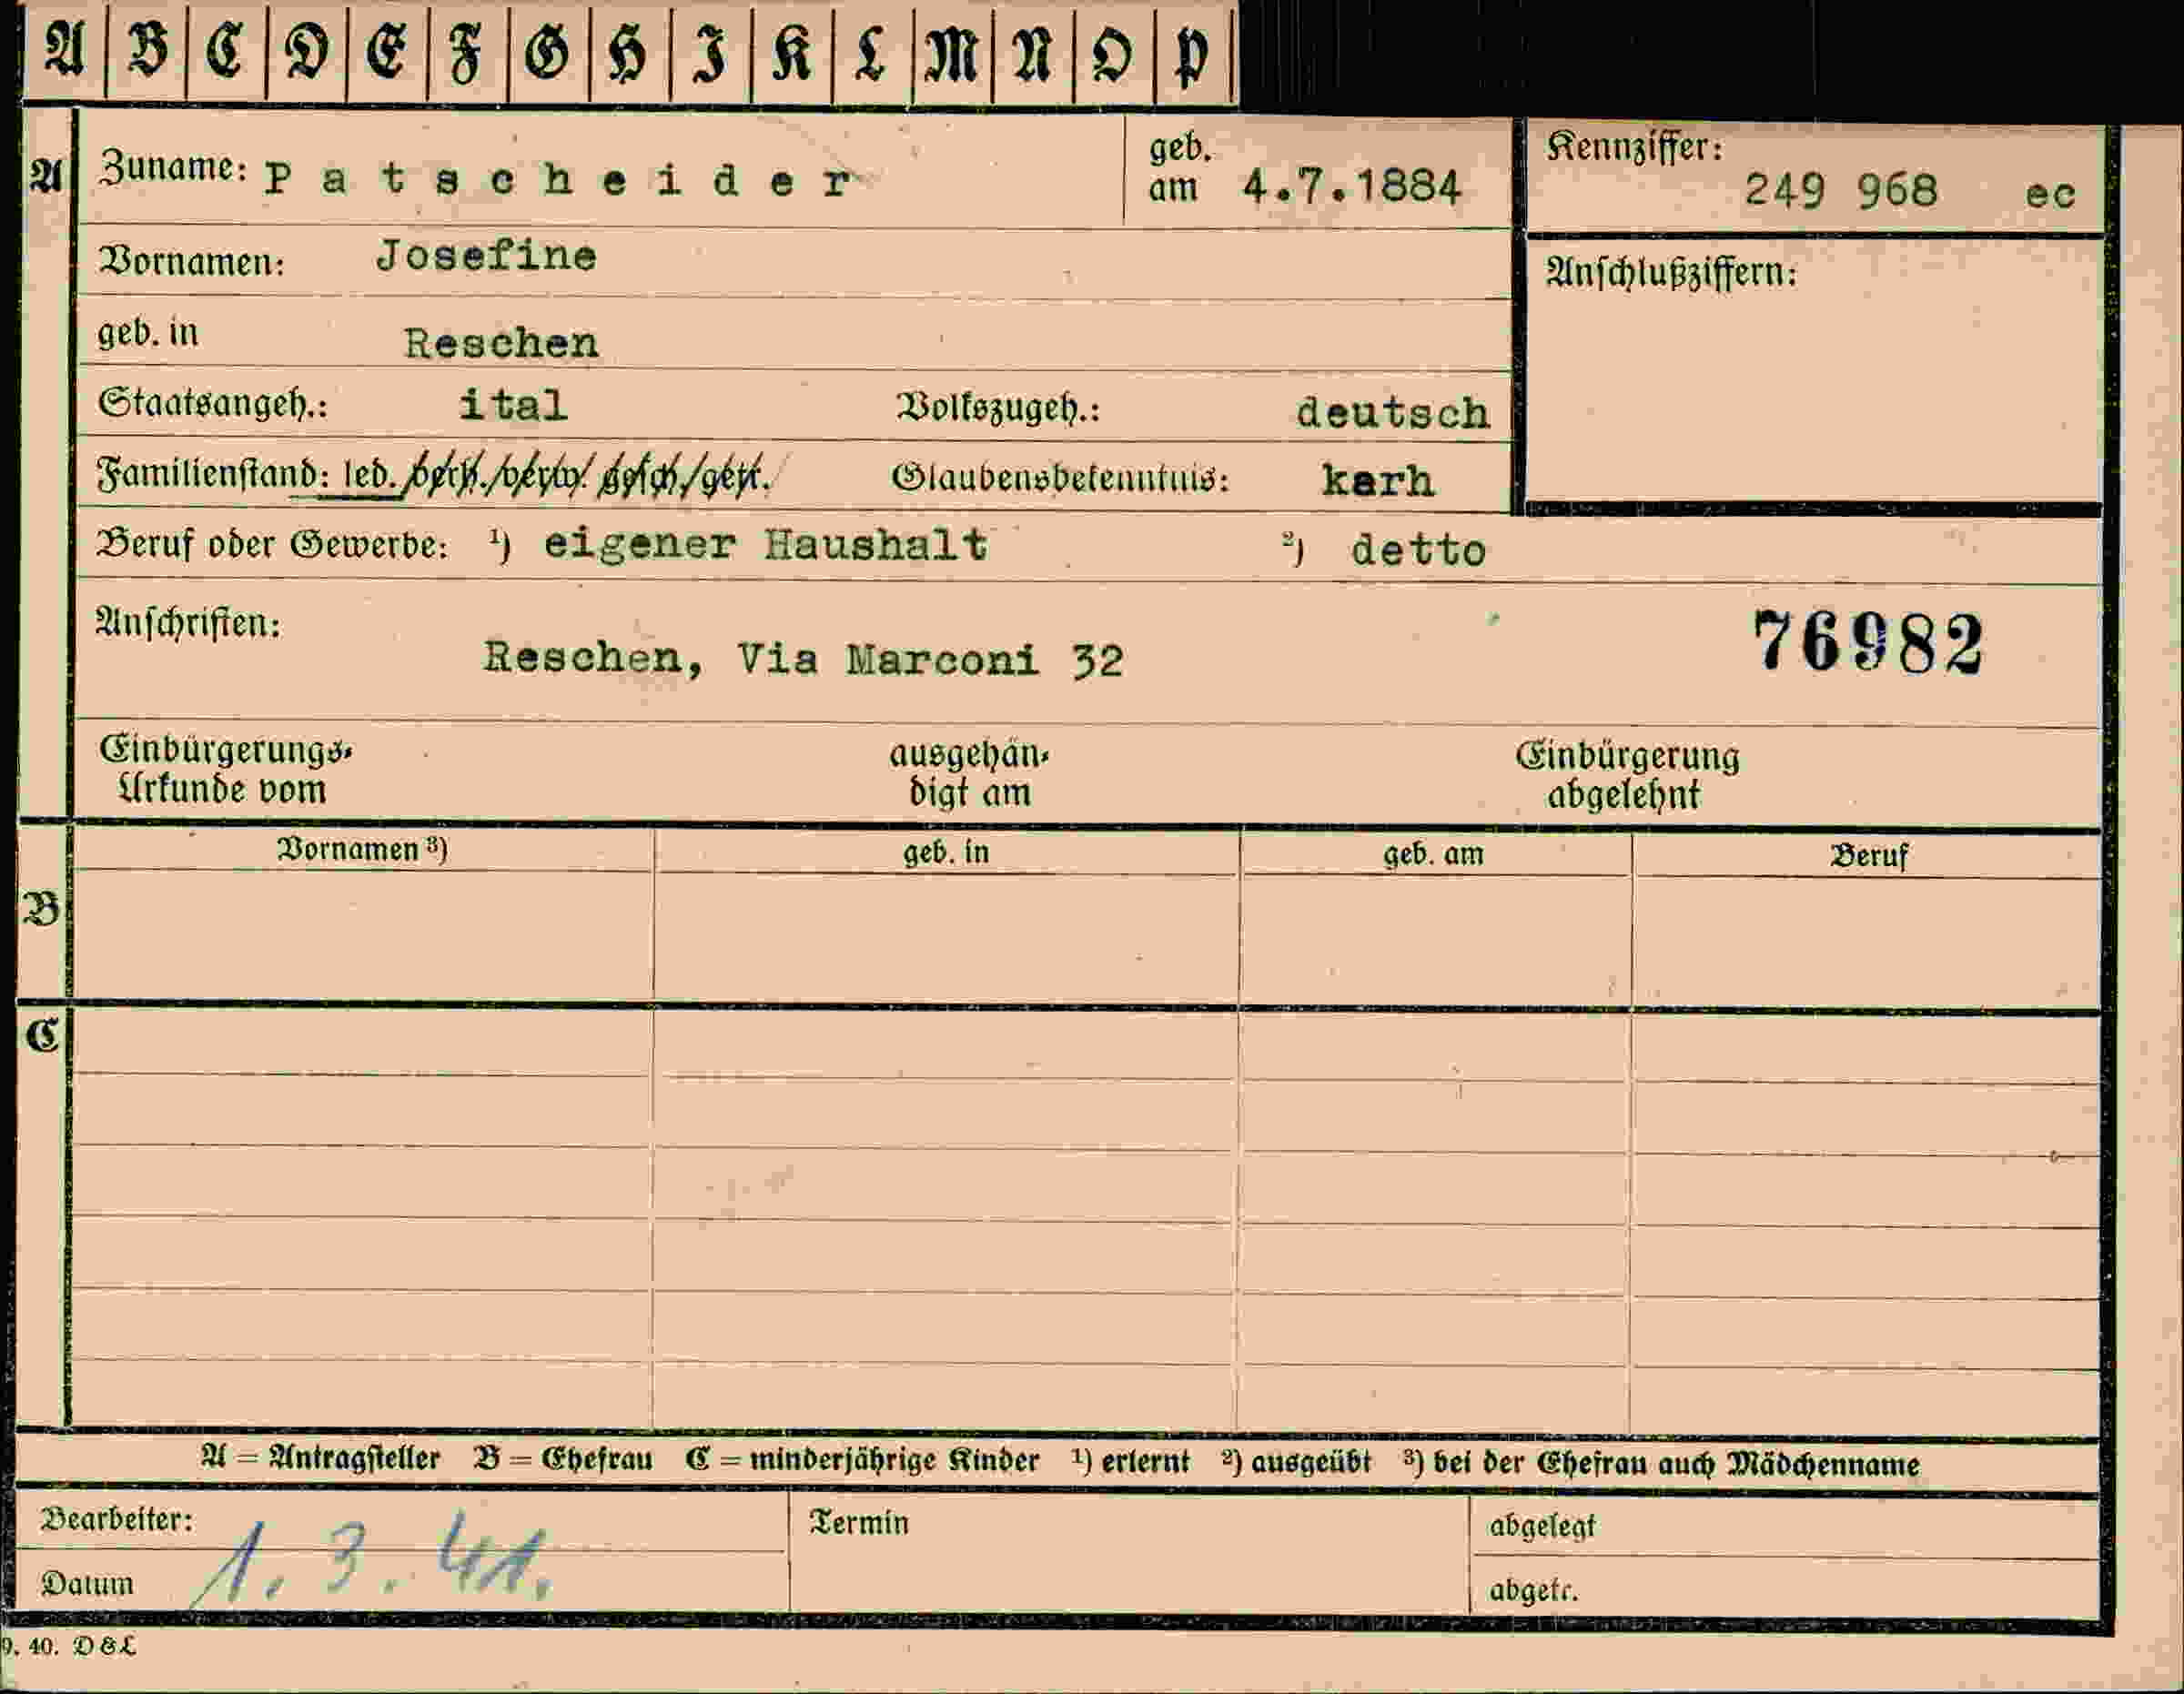 A B C D E F G H I K L M N O P
A Zuname: Patscheider geb. am 4.7.1884 Kennziffer: 249 968 ec
Vornamen: Josefine Anschlußziffern:
geb. in Reschen
Staatsangeh.: ital Volkszugeh.: deutsch
Familienstand: led. /verh./verw./gesch./getr. Glaubensbekenntnis: karh
Beruf oder Gewerbe: ¹) eigener Haushalt ²) detto
Anschriften: 76982
Reschen, Via Marconi 32
Einbürgerungs- ausgehän- Einbürgerung
Urkunde vom digt am abgelehnt
Vornamen ³) geb. in geb. am Beruf
B
C
A = Antragsteller B = Ehefrau C = minderjährige Kinder ¹) erlernt ²) ausgeübt ³) bei der Ehefrau auch Mädchenname
Bearbeiter: Termin abgelegt
Datum 1. 3. 41. abgetr.
9. 40. D&L